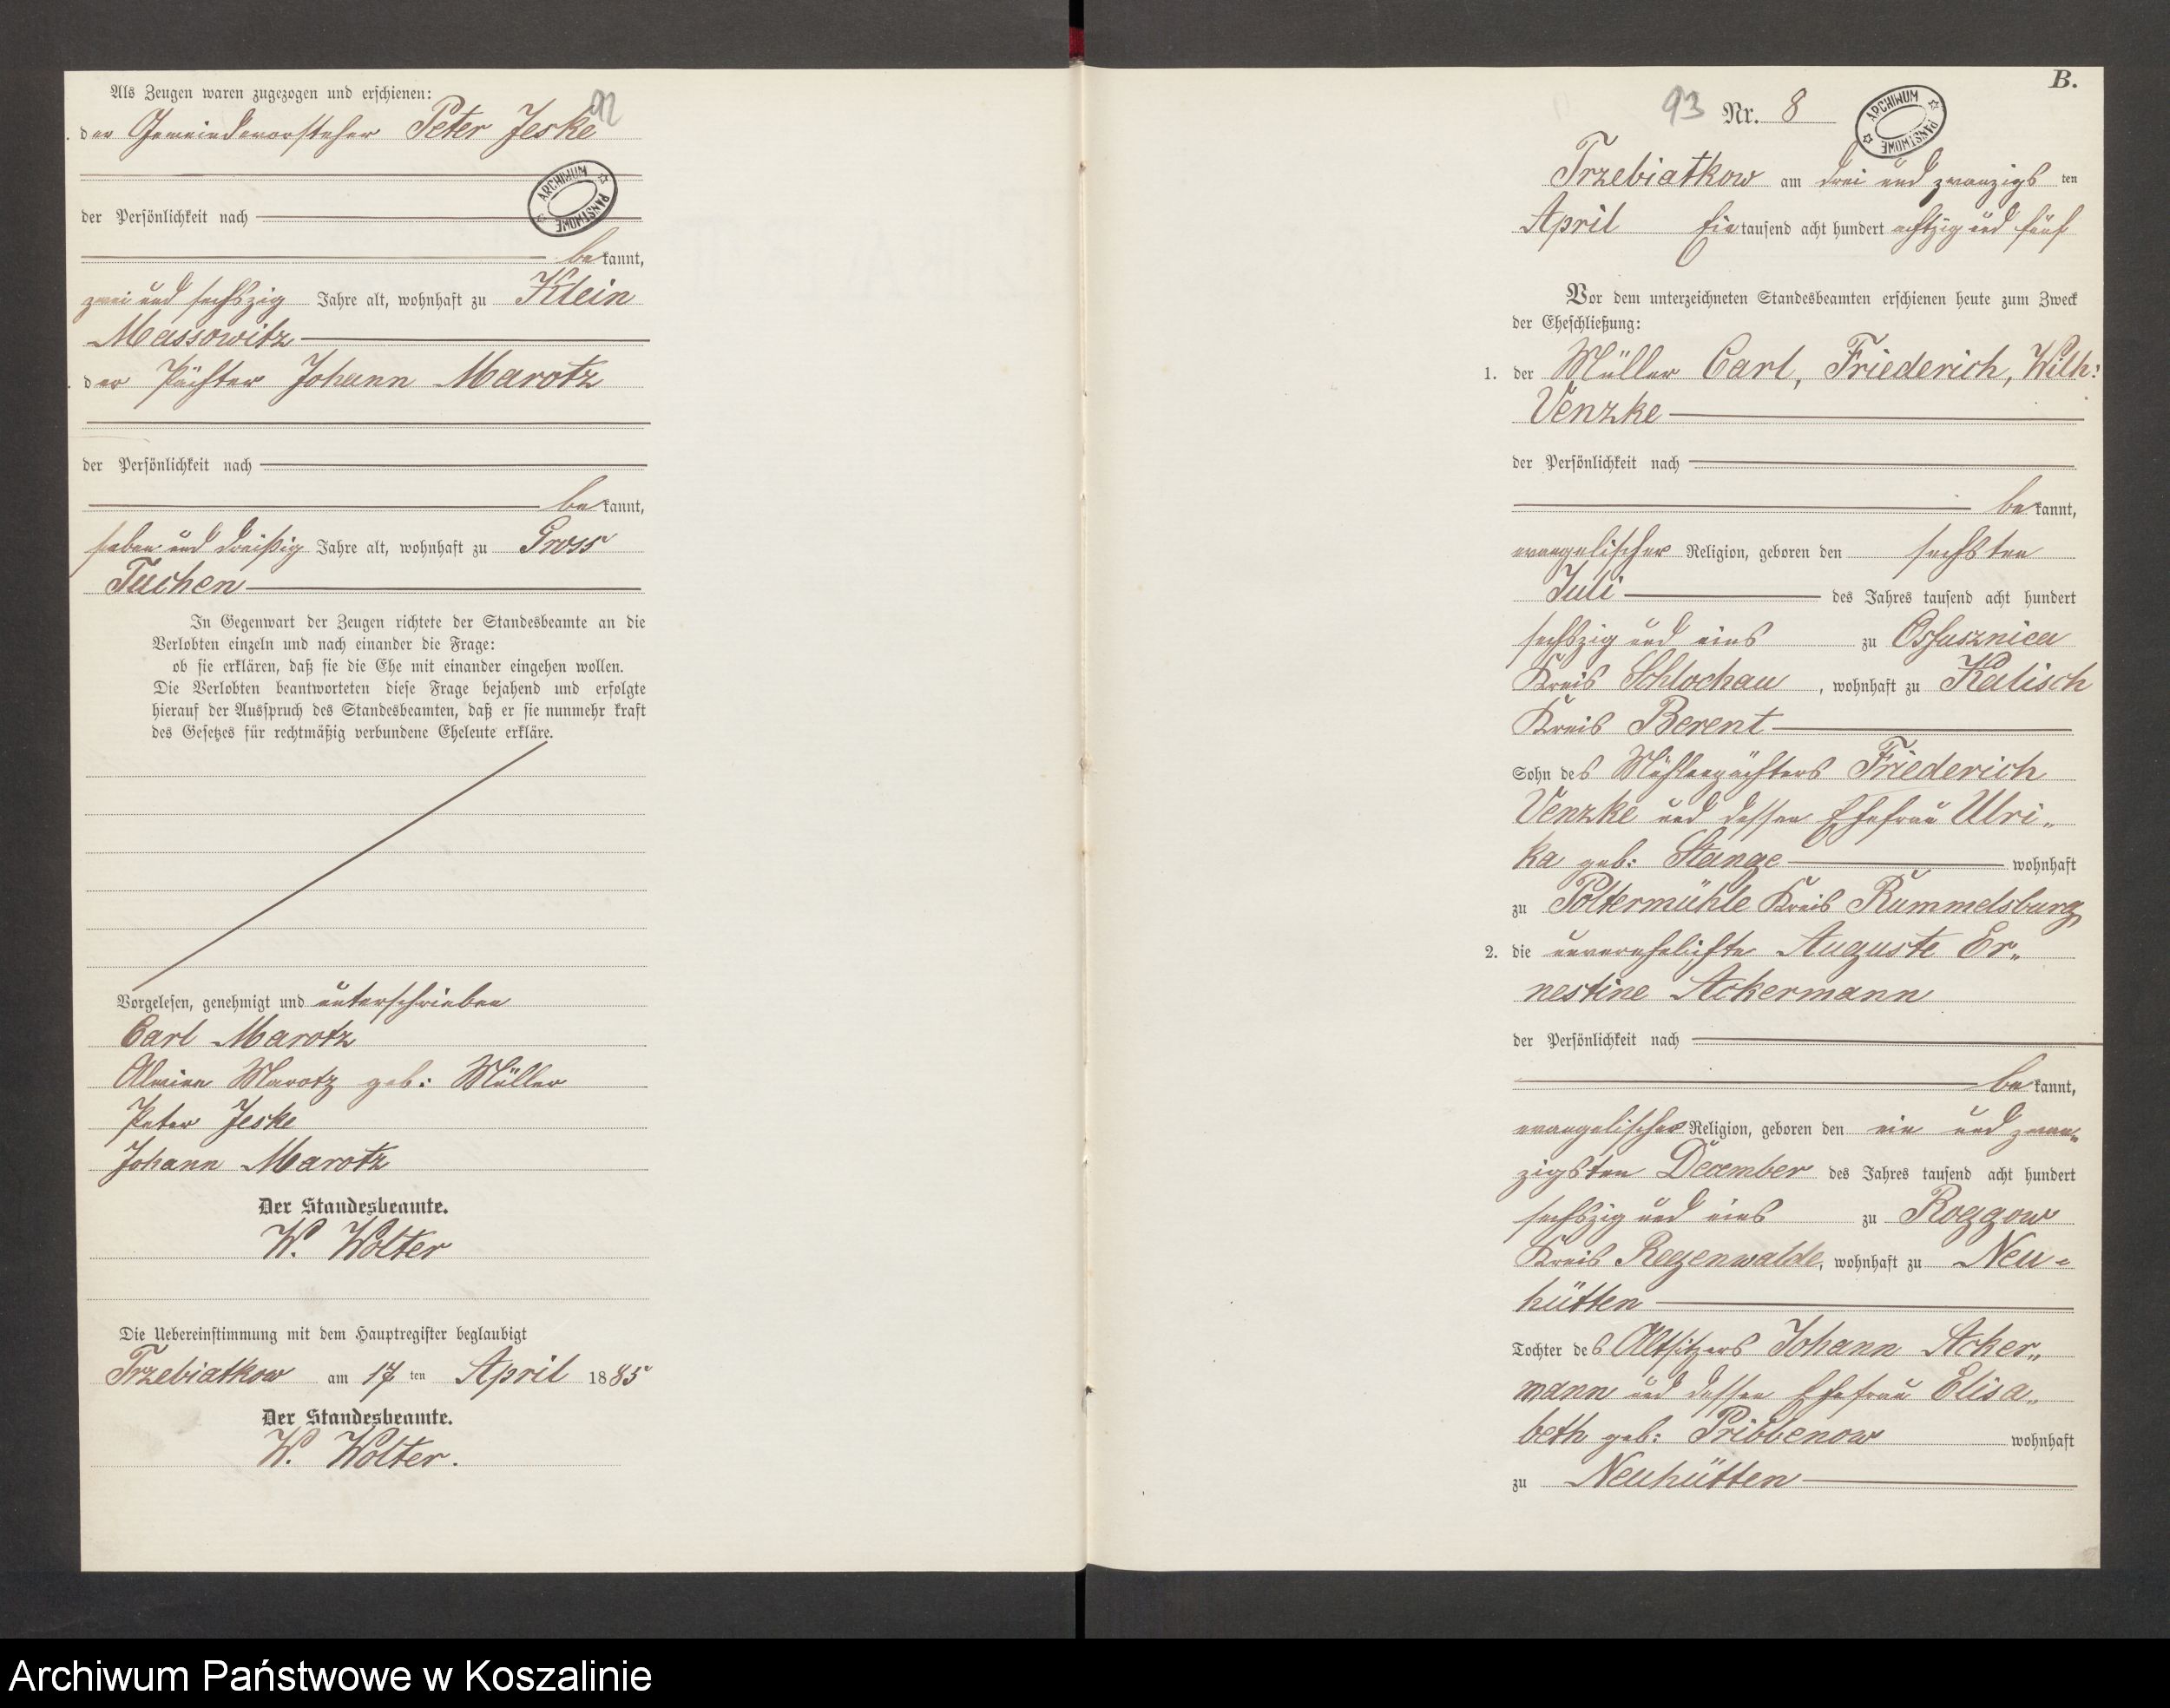 Als Zeugen waren zugezogen und erschienen:
der Gemeindevorsteher Peter Jeske
92
ARCHIWUM PAŃSTWOWE
der Persönlichkeit nach
bekannt,
zwei und sechszig Jahre alt, wohnhaft zu Klein
Massowitz
der Pächter Johann Marotz
der Persönlichkeit nach
bekannt,
sieben und dreißig Jahre alt, wohnhaft zu Gross
Tuchen
In Gegenwart der Zeugen richtete der Standesbeamte an die
Verlobten einzeln und nach einander die Frage:
ob sie erklären, daß sie die Ehe mit einander eingehen wollen.
Die Verlobten beantworteten diese Frage bejahend und erfolgte
hierauf der Ausspruch des Standesbeamten, daß er sie nunmehr kraft
des Gesetzes für rechtmäßig verbundene Eheleute erkläre.
Vorgelesen, genehmigt und unterschrieben
Carl Marotz
Alwine Marotz geb: Müller
Peter Jeske
Johann Marotz
Der Standesbeamte.
W. Wolter
Die Uebereinstimmung mit dem Hauptregister beglaubigt
Trzebiatkow am 17 ten April 1885
Der Standesbeamte.
W. Wolter.
B.
93 Nr. 8
ARCHIWUM PAŃSTWOWE
Trzebiatkow am drei und zwanzigsten
April Eintausend acht hundert achtzig und fünf
Vor dem unterzeichneten Standesbeamten erschienen heute zum Zweck
der Eheschließung:
1. der Müller Carl, Friederich, Wilh:
Venzke
der Persönlichkeit nach
bekannt,
evangelischer Religion, geboren den sechsten
Juli des Jahres tausend acht hundert
sechszig und eins zu Ossusznica
Kreis Schlochau, wohnhaft zu Kalisch
Kreis Berent
Sohn des Mühlenpächters Friederich
Venzke und dessen Ehefrau Ulri„
ka geb: Stange wohnhaft
zu Poltermühle Kreis Rummelsburg
2. die unverehelichte Auguste Er„
nestine Ackermann
der Persönlichkeit nach
bekannt,
evangelischer Religion, geboren den ein und zwan„
zigsten December des Jahres tausend acht hundert
sechszig und eins zu Roggow
Kreis Regenwalde, wohnhaft zu Neu=
hütten
Tochter des Altsitzers Johann Acker„
mann und dessen Ehefrau Elisa„
beth geb: Pribbenow wohnhaft
zu Neuhütten
Archiwum Państwowe w Koszalinie